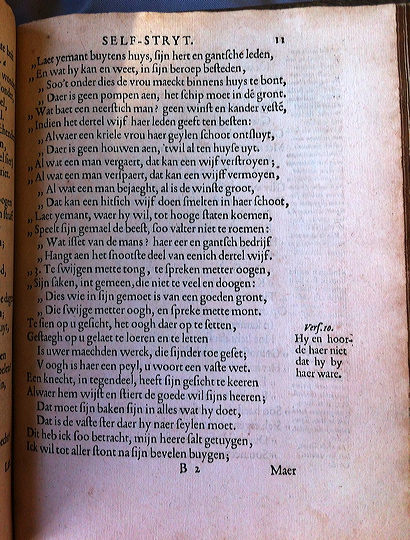 SELF-STRYT. 11
„Laet yemant buytens huys, sijn hert en gantsche leden,
„En wat hy kan en weet, in sijn beroep besteden,
„Soo't onder dies de vrou maeckt binnens huys te bont,
„Daer is geen pompen aen, het schip moet in de gront.
„Wat baet een neerstich man? geen winst en kander vesté,
„Indien het dertel wijf haer leden geeft ten besten:
„Alwaer een kriele vrou haer geylen schoot ontsluyt,
„Daer is geen houwen aen, 'twil al ten huyse uyt.
„Al wat een man vergaert, dat kan een wijf verstroyen;
„Al wat een man verspaert, dat kan een wijff vermoyen,
„Al wat een man bejaeght, al is de winste groot,
„Dat kan een hitsich wijf doen smelten in haer schoot,
„Laet yemant, waer hy wil, tot hooge staten koemen,
„Speelt sijn gemael de beest, soo valter niet te roemen:
„Wat isset van de mans? haer eer en gantsch bedrijf
„Hangt aen het snootste deel van eenich dertel wijf.
„3. Te swijgen mette tong, te spreken metter oogen,
„Sijn saken, int gemeen, die niet te veel en doogen:
„Dies wie in sijn gemoet is van een goeden gront,
„Die swijge metter oogh, en spreke mette mont.
Te sien op u gesicht, het oogh daer op te setten,
Gestaegh op u gelaet te loeren en te letten
Is uwer maechden werck, die sijnder toe geset;
V oogh is haer een peyl, u woort een vaste wet.
Een knecht, in tegendeel, heeft sijn gesicht te keeren
Alwaer hem wijst en stiert de goede wil sijns heeren;
Dat moet sijn baken sijn in alles wat hy doet,
Dat is de vaste ster daer hy naer seylen moet.
Dit heb ick soo betracht, mijn heere sal't getuygen,
Ick wil tot aller stont na sijn bevelen buygen;
Vers. 10.
Hy en hoor-
de haer niet
dat hy by
haer ware.
B 2 Maer